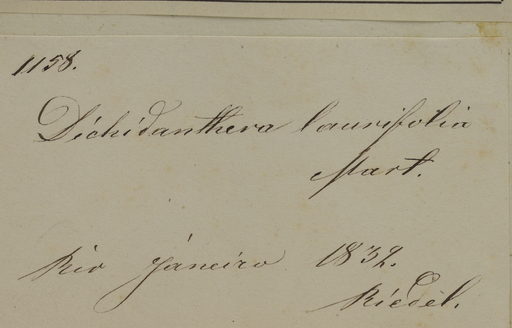 1158.
Dichidanthera laurifolia
Mart.
Rio Janeiro 1832.
Riedel.